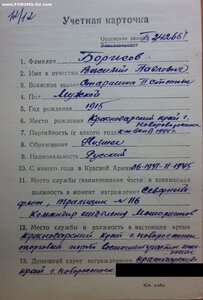 www.FORUMS-SU.com
12/12
Учетная карточка
Б 242661
1. Фамилия Борисов
2. Имя и отчество Василий Павлович
3. Воинское звание Старшина II статьи
4. Пол Мужской
5. Год рождения 1915
6. Место рождения Краснодарский край г. Новороссийск
7. Партийность (с какого года)
8. Образование Низшее
9. Национальность Русский
10. С какого года в Красной Армии 1941-
11. Место службы (наименование части) и занимаемая
должность в момент награждения Северный
флот, тральщик № 116
Командир отделения Мотористов
12. Место службы и должность в настоящее время
Краснодарский край г. Новороссийск
13. Домашний адрес награжденного Краснодарский
край г. Новороссийск